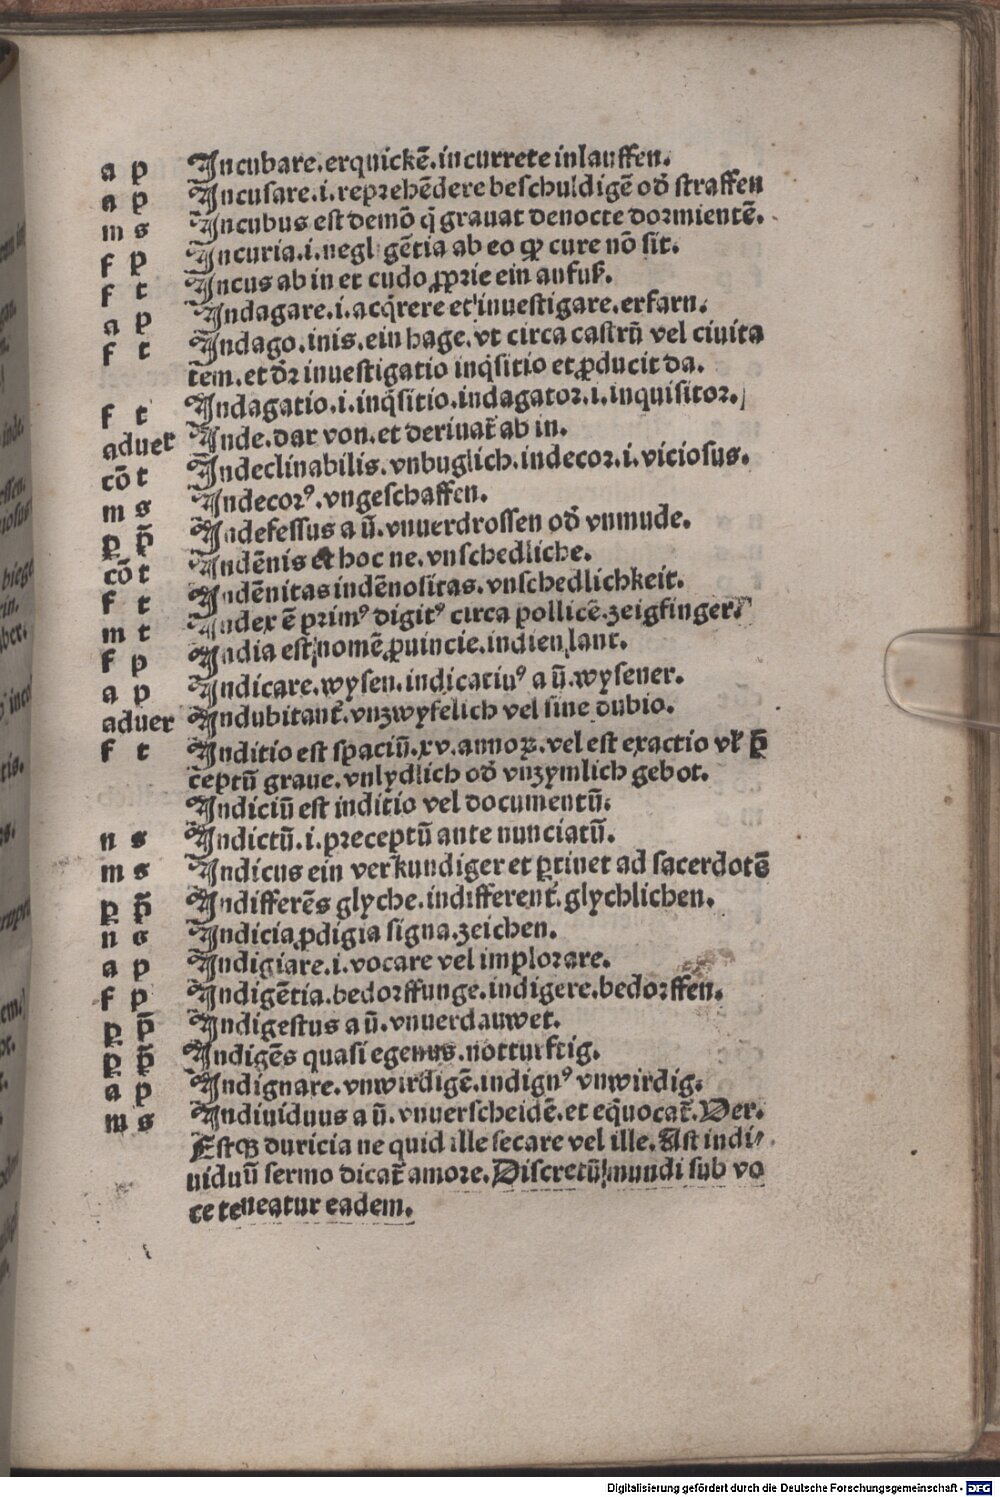 a p Incubare.erquickē.incurrete inlauffen.
a p Incusare.i.reprehēdere beschuldigē oď straffen
m s Incubus est demō q̄ grauat denocte dormientē.
f p Incuria.i.negl gētia ab eo ꝙ cure nō sit.
f t Incus ab in et cudo ꝓprie ein anfuß.
a p Indagare.i.acq̇rere et inuestigare.erfarn.
f t Indago.inis.ein hage.vt circa castrū vel ciuita
tem.et dr̄ inuestigatio inq̇sitio et ꝓducit da.
f t Indagatio.i.inq̇sitio.indagator.i.inquisitor.
aduer̄ Inde.dar von.et deriuat̄ ab in.
cō t Indeclinabilis.vnbuglich.indecor.i.viciosus.
m s Indecorꝰ.vngeschaffen.
p p̄ Indefessus a ū.vnuerdrossen oď vnmude.
cō t Indēnis et hoc ne.vnschedliche.
f t Indēnitas indēnositas.vnschedlichkeit.
m t Index ē primꝰ digitꝰ circa pollicē.zeigfinger.
f p India est nomē ꝓuincie.indien lant.
a p Indicare.wysen.indicatiuꝰ a ū.wysener.
aduer Indubitant̄.vnzwyfelich vel sine dubio.
f t Inditio est spaciū.xv.annoꝝ.vel est exactio vl̄ p̄
ceptū graue.vnlydlich oď vnzymlich gebot.
Indiciū est inditio vel documentū.
n s Indictū.i.preceptū ante nunciatū.
m s Indicus ein verkundiger et ꝑtinet ad sacerdotē
p p̄ Indifferēs glyche.indifferent̄.glychlichen.
n s Indicia ꝓdigia signa.zeichen.
a p Indigiare.i.vocare vel implorare.
f p Indigētia.bedorffunge.indigere.bedorffen.
p p̄ Indigestus a ū.vnuerdauwet.
p p̄ Indigēs quasi egenus.notturftig.
a p Indignare.vnwirdigē.indignꝰ vnwirdig.
m s Indiuiduus a ū.vnuerscheidē.et eq̄uocat̄.Ver.
Estqꝫ duricia ne quid ille secare vel ille.Ast indi⸗
uiduū sermo dicat̄ amore.Discretū mundi sub vo
ce teneatur eadem.
Digitalisierung gefördert durch die Deutsche Forschungsgemeinschaft - DFG